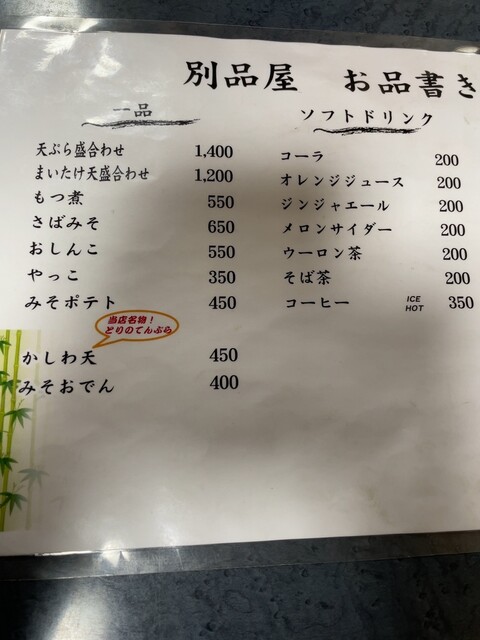 別品屋 お品書き
一品
天ぷら盛合わせ 1,400
まいたけ天盛合わせ 1,200
もつ煮 550
さばみそ 650
おしんこ 550
やっこ 350
みそポテト 450
当店名物！
とりのてんぷら
かしわ天 450
みそおでん 400
ソフトドリンク
コーラ 200
オレンジジュース 200
ジンジャエール 200
メロンサイダー 200
ウーロン茶 200
そば茶 200
コーヒー ICE HOT 350